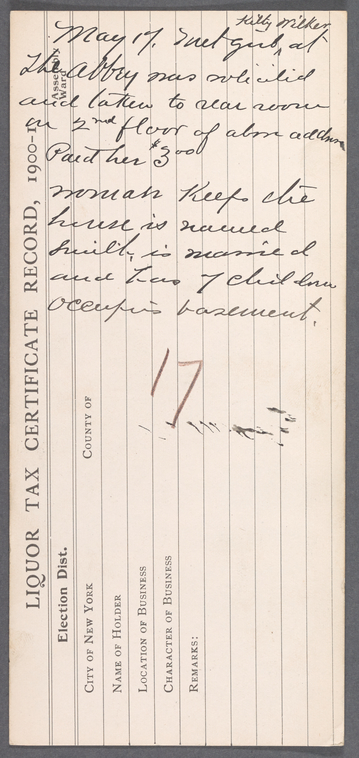 Kitty Wilker
May 17. Met girl ^ at
The Abbey was solicited
and taken to rear room
on 2nd floor of above address
Paid her $3.00
woman keeps the
house is named
Smith, is married
and has 7 children
occupies basement.
17
LIQUOR TAX CERTIFICATE RECORD, 1900-1
Assembly
Ward
Election Dist.
COUNTY OF
CITY OF NEW YORK
NAME OF HOLDER
LOCATION OF BUSINESS
CHARACTER OF BUSINESS
REMARKS: